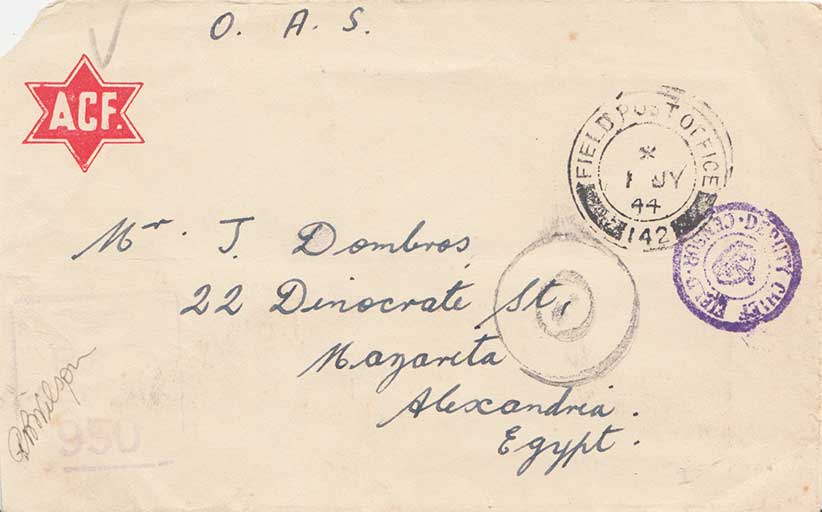 O. A. S.
ACF.
FIELD POST OFFICE
1 JY
44
142
DEPUTY CHIEF FIELD CENSOR
Mr. J. Dombros,
22 Dinocrate St,
Mazarita
Alexandria.
Egypt.
Wilson
950